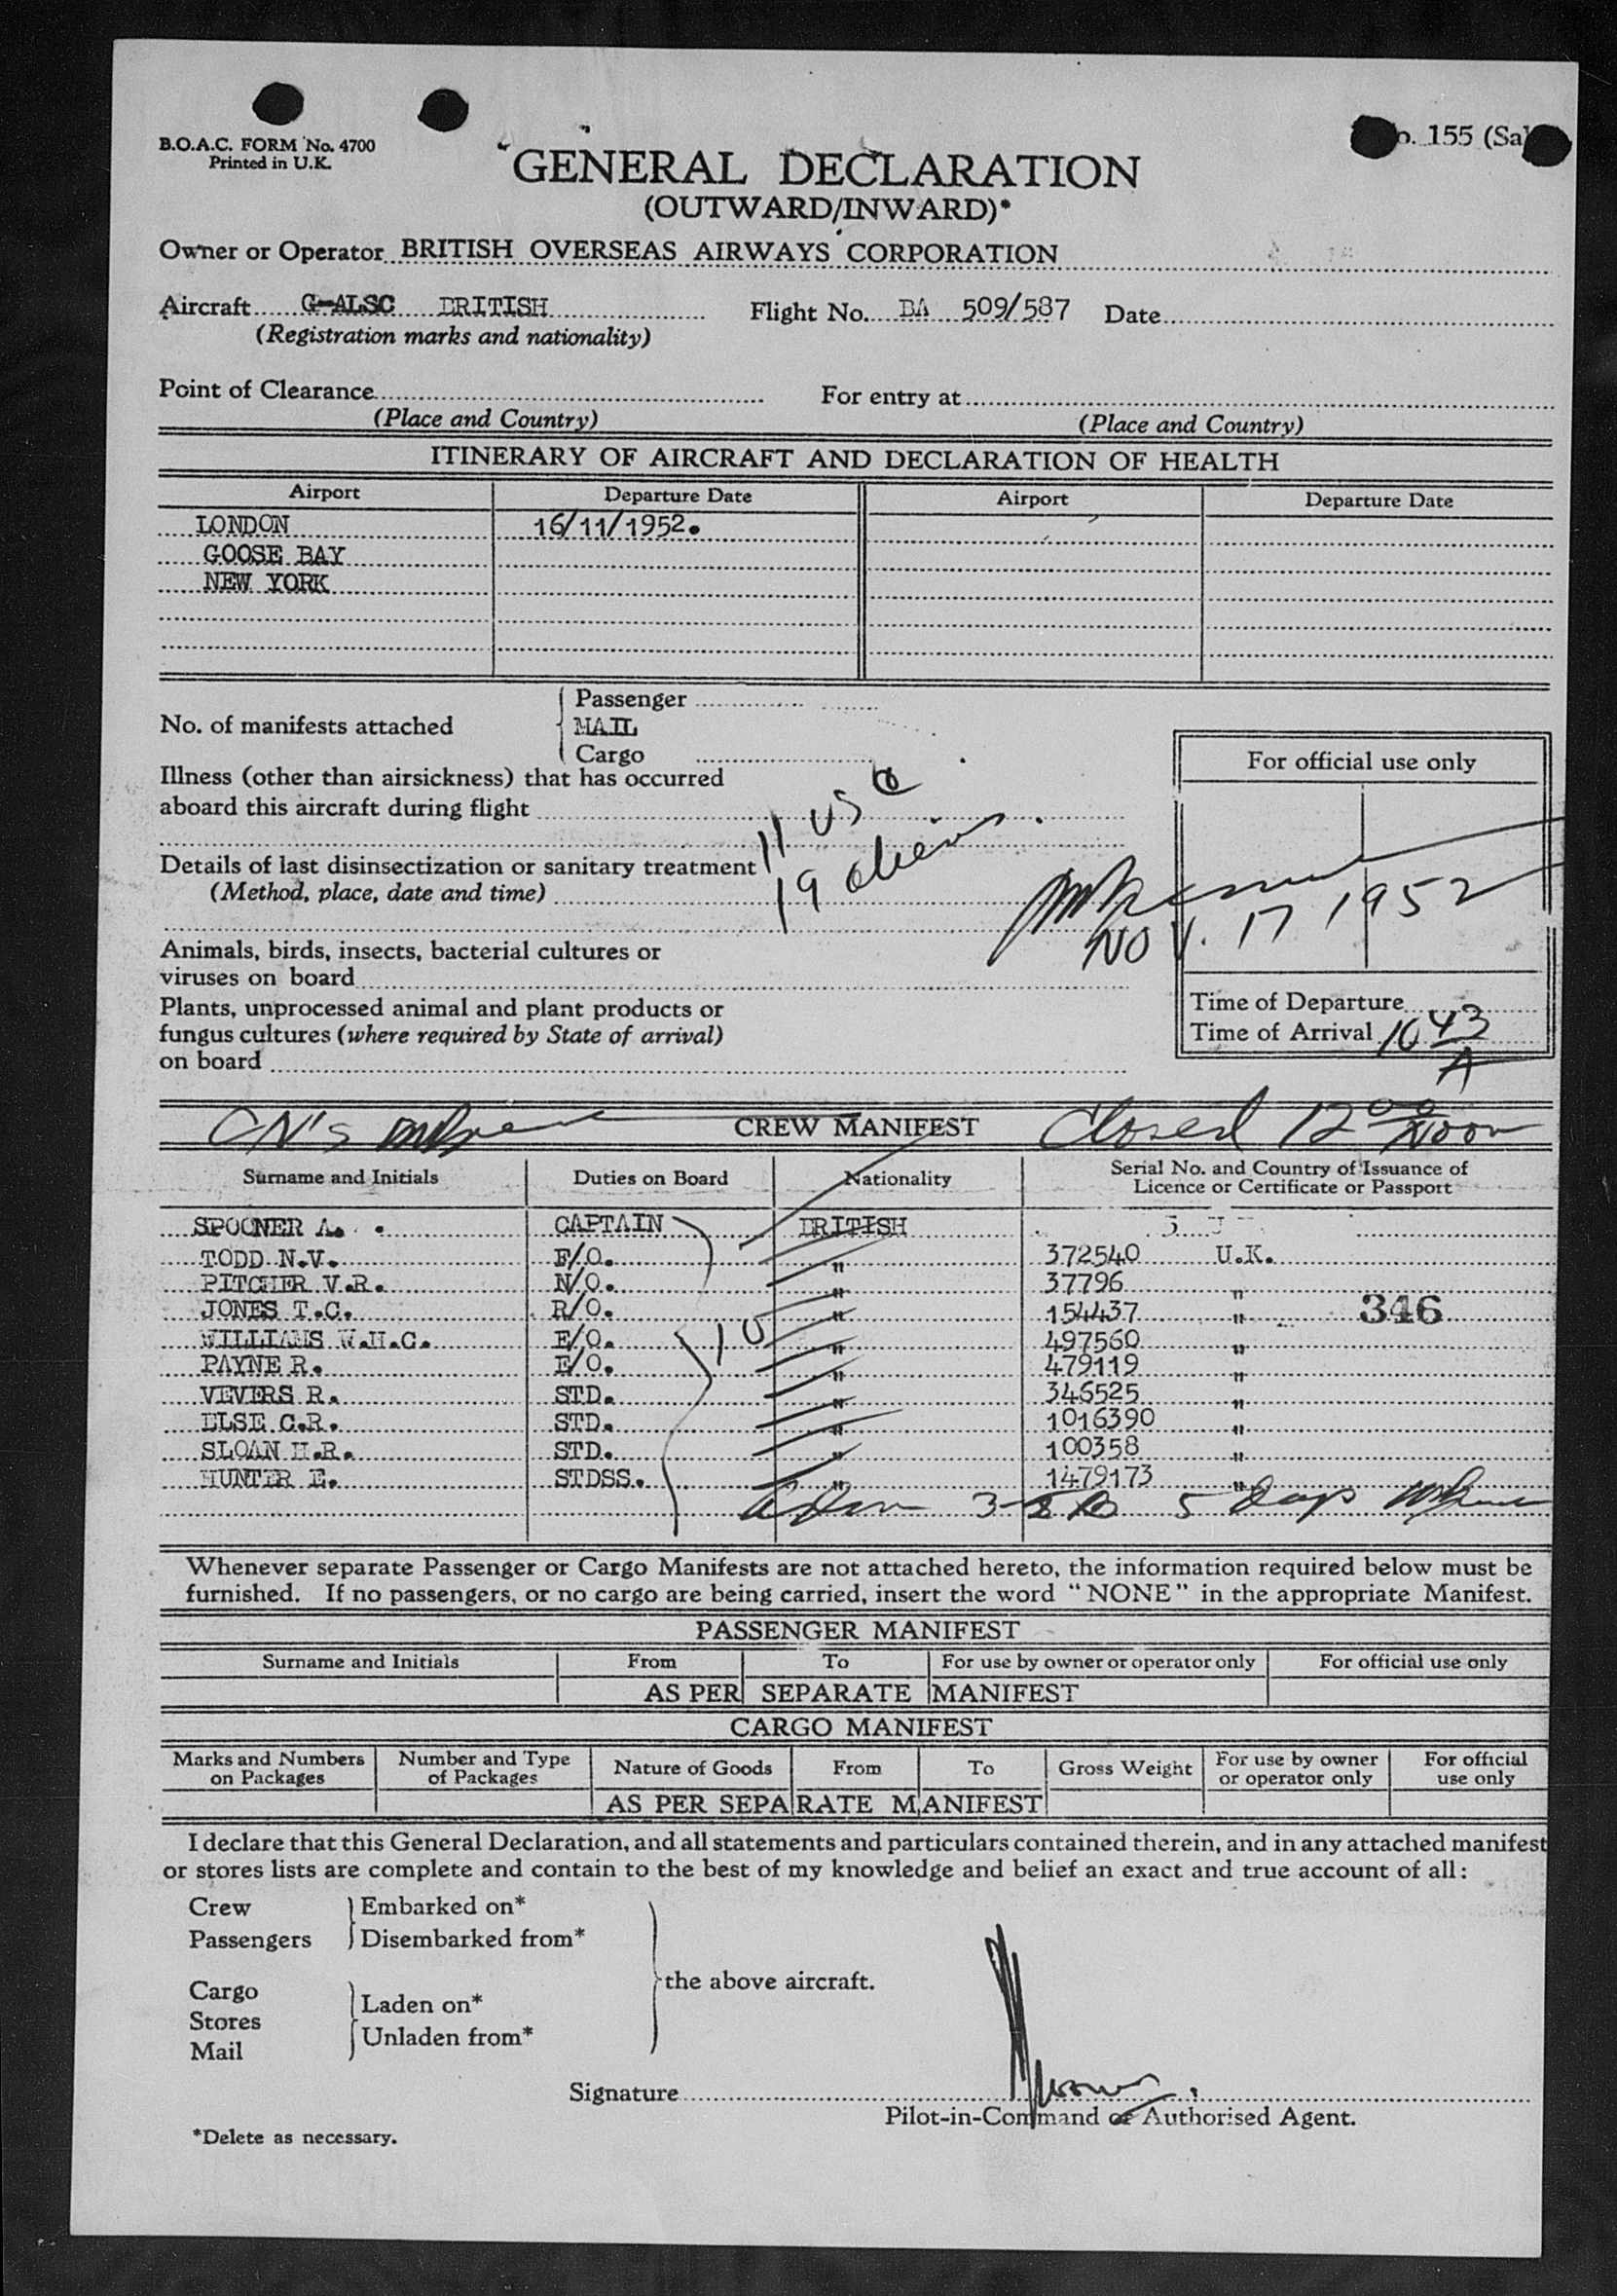 B.O.A.C. FORM No. 4700
Printed in U.K.
155 (Sa
GENERAL DECLARATION
(OUTWARD/INWARD)*
Owner or Operator BRITISH OVERSEAS AIRWAYS CORPORATION
Aircraft G-ALSC BRITISH Flight No. BA 509/587 Date
(Registration marks and nationality)
Point of Clearance For entry at
(Place and Country) (Place and Country)
ITINERARY OF AIRCRAFT AND DECLARATION OF HEALTH
Airport Departure Date Airport Departure Date
LONDON 16/11/1952.
GOOSE BAY
NEW YORK
Passenger
No. of manifests attached MAIL
Cargo
For official use only
Illness (other than airsickness) that has occurred
aboard this aircraft during flight
11 USC
Details of last disinsectization or sanitary treatment
19 aliens
(Method, place, date and time)
NOV. 17 1952
Animals, birds, insects, bacterial cultures or
viruses on board
Plants, unprocessed animal and plant products or
fungus cultures (where required by State of arrival)
on board
Time of Departure
Time of Arrival 1043
A
CREW MANIFEST Closed 12 00 Noon
Surname and Initials Duties on Board Nationality Serial No. and Country of Issuance of
Licence or Certificate or Passport
SPOONER A. CAPTAIN BRITISH
TODD N.V. F/O. " 372540 U.K.
PITCHER V.R. N/O. " 37796 "
JONES T.C. R/O. " 154437 " 346
WILLIAMS W.H.C. E/O. " 497560 "
PAYNE R. E/O. " 479119 "
VEVERS R. STD. " 346525 "
ELSE C.R. STD. " 1016390 "
SLOAN H.R. STD. " 100358 "
HUNTER E. STDSS. " 1479173 "
10
5 Days
Whenever separate Passenger or Cargo Manifests are not attached hereto, the information required below must be
furnished. If no passengers, or no cargo are being carried, insert the word "NONE" in the appropriate Manifest.
PASSENGER MANIFEST
Surname and Initials From To For use by owner or operator only For official use only
AS PER SEPARATE MANIFEST
CARGO MANIFEST
Marks and Numbers on Packages Number and Type of Packages Nature of Goods From To Gross Weight For use by owner or operator only For official use only
AS PER SEPARATE MANIFEST
I declare that this General Declaration, and all statements and particulars contained therein, and in any attached manifest
or stores lists are complete and contain to the best of my knowledge and belief an exact and true account of all:
Crew Embarked on*
Passengers Disembarked from*
the above aircraft.
Cargo
Laden on*
Stores
Unladen from*
Mail
Signature
Pilot-in-Command or Authorised Agent.
*Delete as necessary.